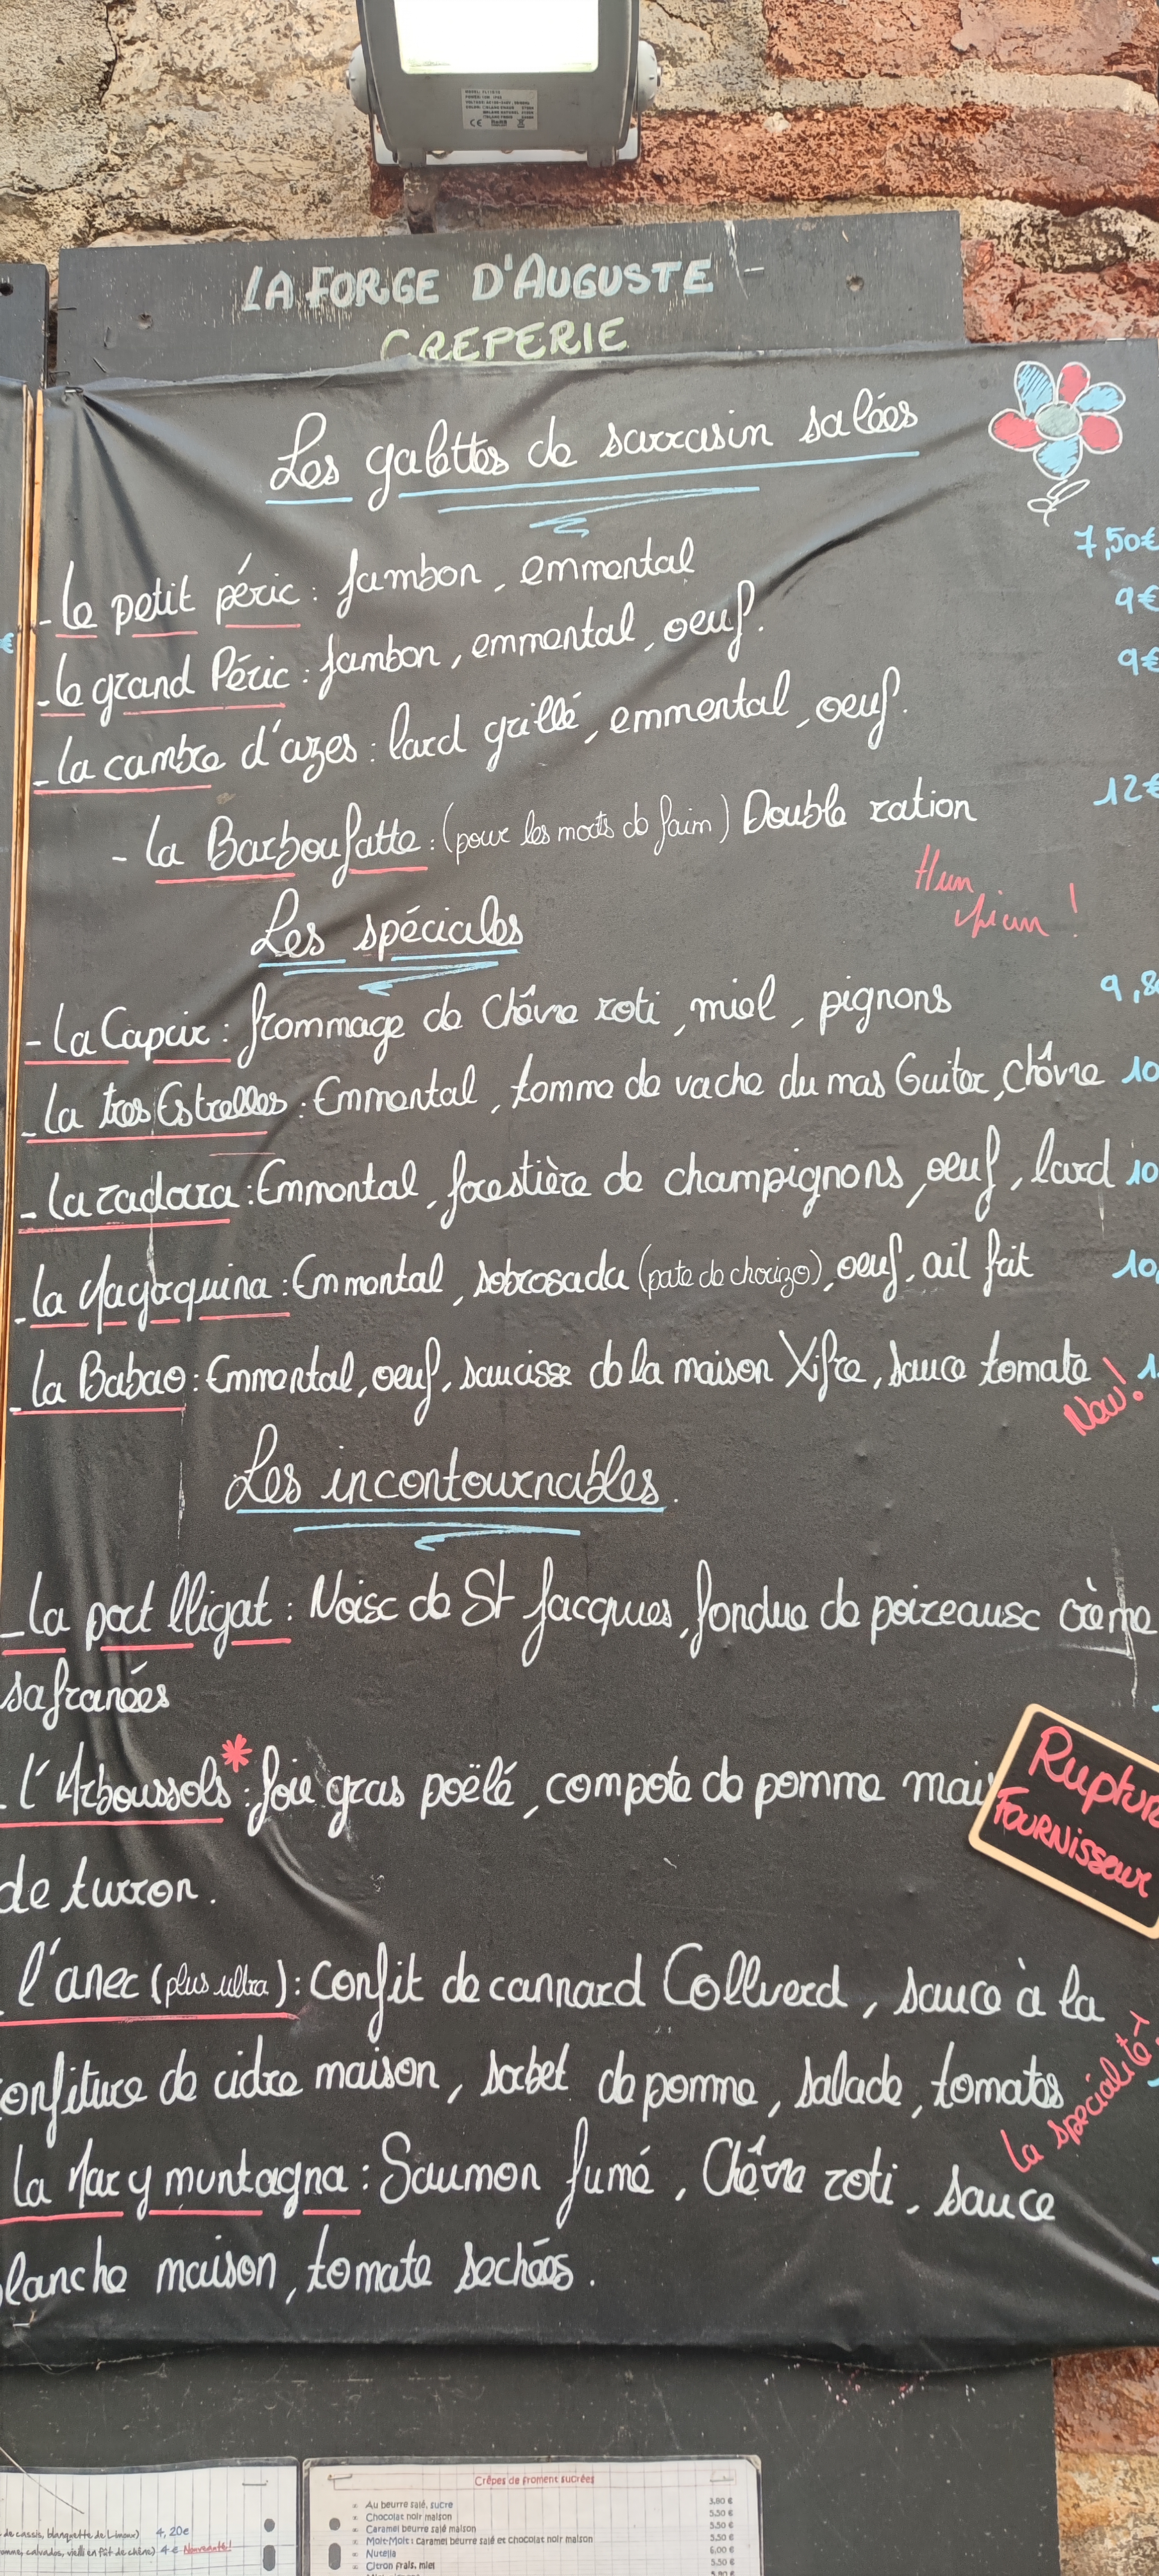 LA FORGE D'AUGUSTE -
CREPERIE
Les galettes de sarrasin salées
- le petit péric : Jambon, emmental 7,50€
- le grand Péric : Jambon, emmental, oeuf. 9€
- la cambre d'azes : lard grillé, emmental, oeuf. 9€
- la Barboufatte : (pour les morts de faim) Double ration 12€
€
Les spéciales
- la Capcir : frommage de Chêvre roti, miel, pignons 9,8
- la tres Estrelles : Emmental, tomme de vache du mas Guiter, Chêvre 10
- la zadora : Emmental, forestière de champignons, oeuf, lard 10
- la : Emmental, sobrosada (pate de chorizo), oeuf, ail frit 10,
- la Babao : Emmental, oeuf, saucisse de la maison Xifre, sauce tomate 1
New!
Les incontournables.
- la port lligat : Noix de St Jacques, fondue de poireaux crème
safranées
- l'Arboussols * : foie gras poëlé, compote de pomme mai
Rupture
FOURNisseur
de turron.
- l'anec (plus ultra) : Confit de cannard Collverd, sauce à la
onfiture de cidre maison, sorbet de pomme, salade, tomates
la spécialité
la Mar y muntagna : Saumon fumé, Chêvre roti, sauce
lanche maison, tomate sechées.
de cassis, blanquette de Limoux) 4,20e
omme, calvados, vieilli en fût de chêne) 4 e Nouveauté!
Crêpes de froment sucrées
Au beurre salé, sucre 3,80 €
Chocolat noir maison 5,50 €
Caramel beurre salé maison 5,50 €
Moit-Moit : caramel beurre salé et chocolat noir maison 5,50 €
Nutella 6,00 €
Citron frais, miel 5,50 €